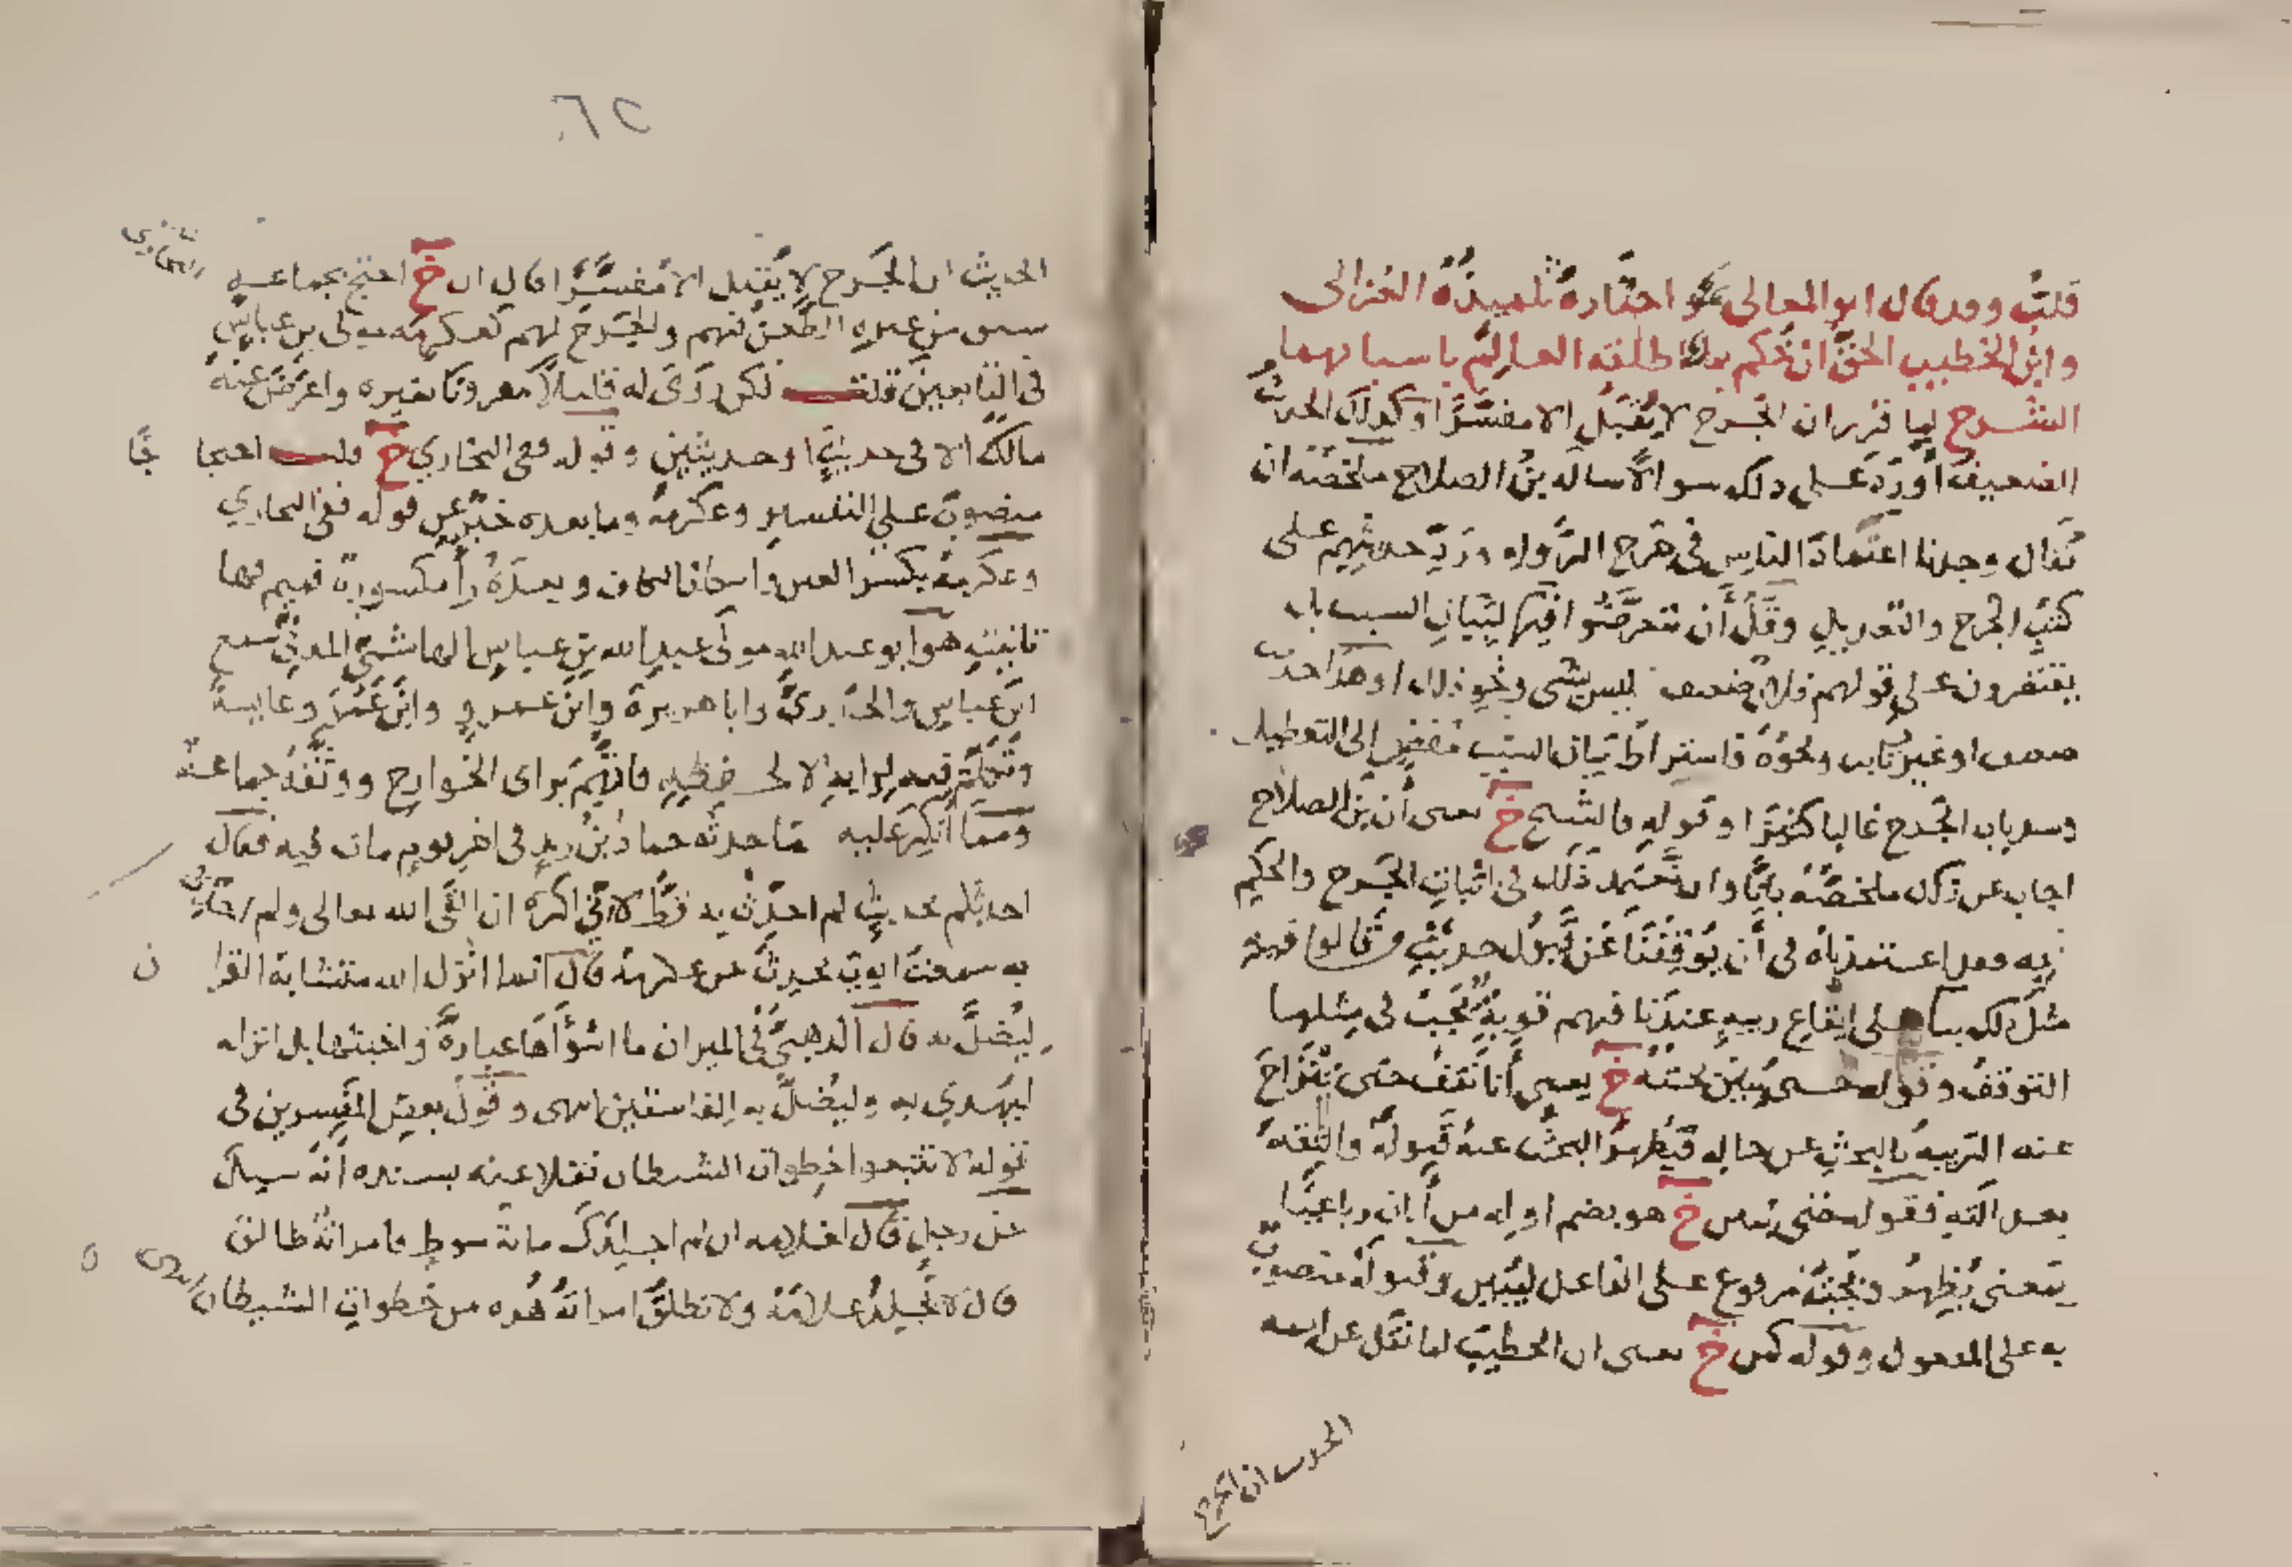 قلت وقد قال ابو المعالي واختاره تلميذه الغزالي
وابن الخطيب الحق ان يحكم بما اطلقه العالم باسبابهما
الشرح لما قرر ان الجرح لا يقبل الا مفسرا وكذلك الحديث
الضعيف اورد على ذلك سوالا ساله بن الصلاح ملخصه ان
يقال وجدنا اعتماد الناس في جرح الرواه ورد حديثهم على
كتب الجرح والتعديل وقل أن تتعرضوا فيها لبيان السبب بل
يقتصرون على قولهم فلان ضعيف ليس بشي ونحو ذلك او هذا حديث
ضعيف او غير ثابت ونحوه فاشتراط بيان السبب مفض إلى التعطيل
وسد باب الجرح غالبا كثيرا وقوله فالشيخ خ يعني أن بن الصلاح
اجاب عن ذلك ملخصه بانا وان لم نعتمد ذلك في اثبات الجرح والحكم
به فقد اعتمدناه في أن توقفنا عن قبول حديث من قالوا فيه
مثل ذلك بنا على ايقاع ريبه عندنا فيهم قوية يجب في مثلها
التوقف وقوله حتى يبين بحثه خ يعني أنا نقف حتى تنزاح
عنه الريبه بالبحث عن حاله فيظهر البحث عنه قبوله والثقة
بعدالته فقوله حتى يبين خ هو بضم اوله من أبان رباعيا
بمعنى يظهر وبحثه مرفوع على الفاعل ليبين وقبوله منصوب
به على المفعول وقوله كمن خ يعني ان الخطيب لما نقل عن ايمه
الحديث ان الجرح
٦٥
الحديث ان الجرح لا يقبل الا مفسرا قال ان خ احتج بجماعه
البخاري
سبق من غيره الطعن فيهم والجرح لهم كعكرمه مولى بن عباس
في التابعين قلت لكن روى له قليلا مقرونا بغيره واعرض عنه
مالك الا في حديث او حديثين وقوله ففي البخاري خ قلت احتجا جا
منصوب على التفسير وعكرمة وما بعده خبر عن قوله ففي البخاري
وعكرمة بكسر العين واسكان الكاف وبعده را مكسورة فميم فها
تانيث هو ابو عبد الله مولى عبد الله بن عباس الهاشمي المدني سمع
ابن عباس والخدري وابا هريرة وابن عمرو وابن عمر وعايشة
وتكلم فيه لرايه لا لحفظه فاتهم براى الخوارج ووثقه جماعة
ومما أنكر عليه ما حدثه حماد بن زيد في اخر يوم مات فيه فقال
احدثكم بحديث لم احدث به قط لاني اكره ان القى الله تعالى ولم احدث
به سمعت ايوب يحدث عن عكرمة قال انما انزل الله متشابه القرا ن
ليضل به قال الذهبي في الميزان ما اسوأها عبارة واخبثها بل انزله
ليهدي به وليضل به الفاسقين انتهى وقول بعض المفسرين في
قوله لا تتبعوا خطوات الشيطان نقلا عنه بسنده أنه سيل
عن رجل قال لغلامه ان لم اجلدك مائة سوط فامراته طالق
قال لا يجلد غلامه ولا تطلق امراته هذه من خطوات الشيطان انتهى